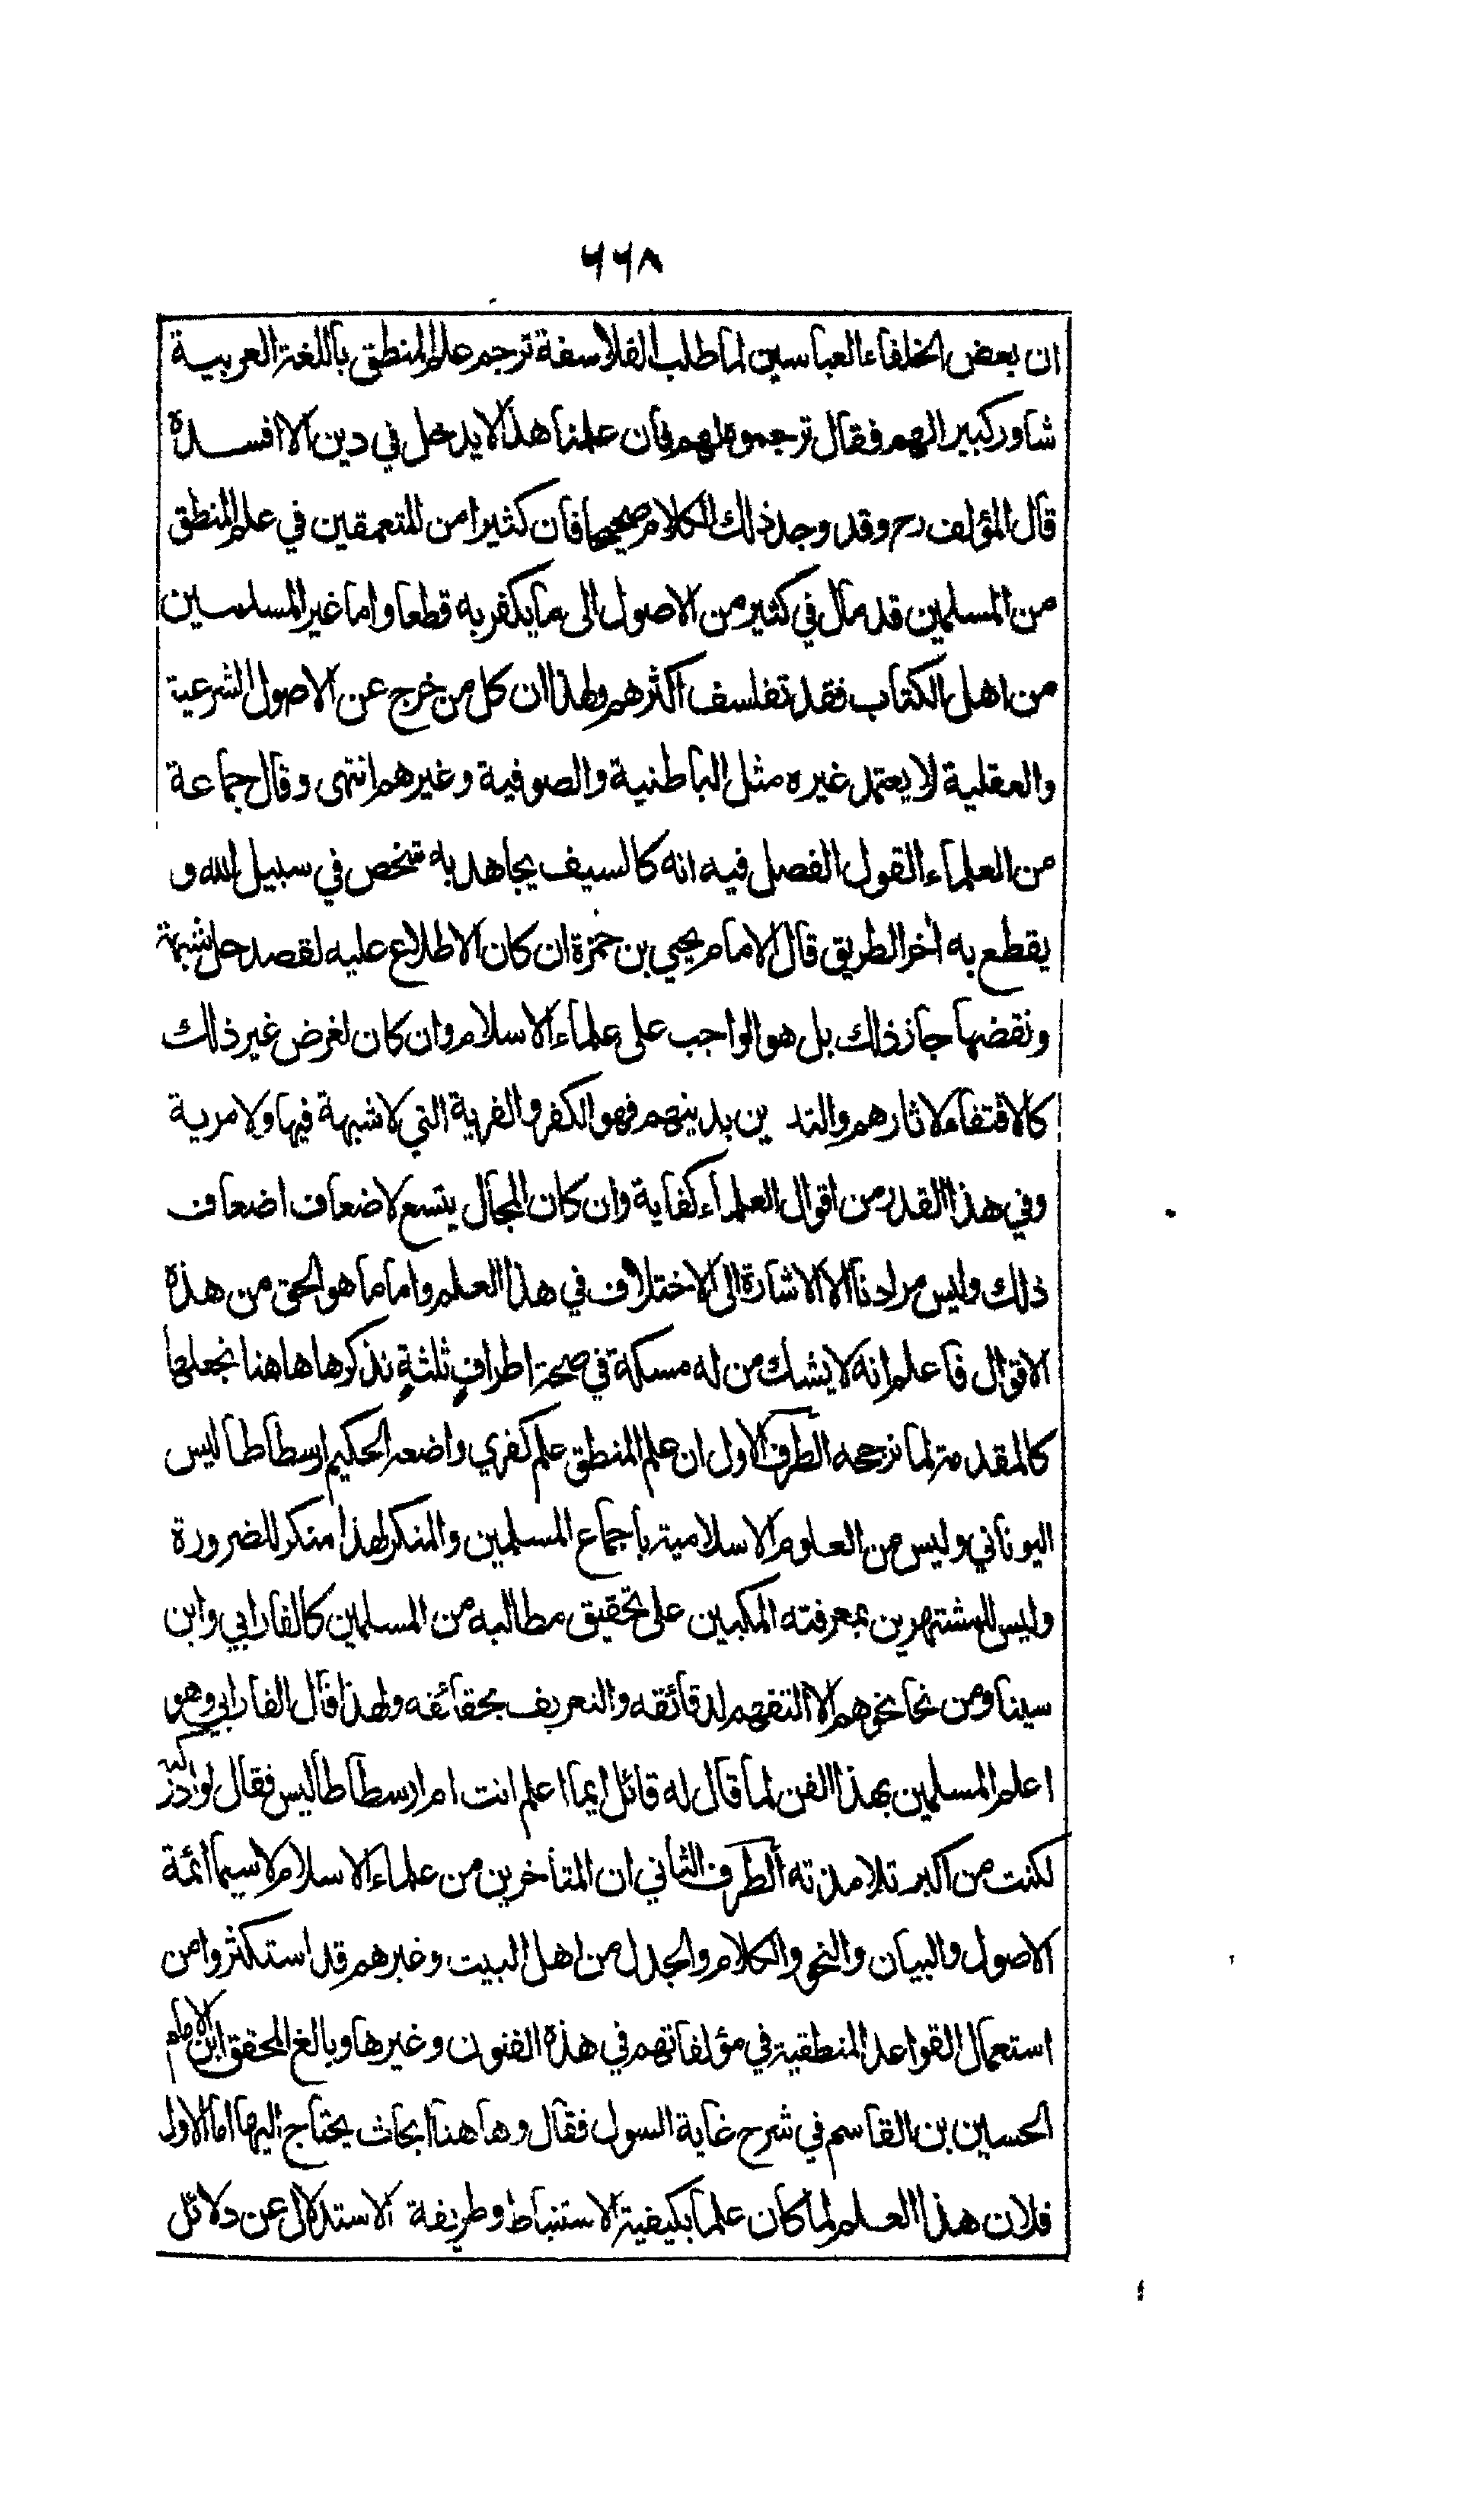 ٦٦٨
ان بعض الخلفاء العباسين لما طلب الفلاسفة ترجم علم المنطق باللغة العربية
شاور كبيرا لهم فقال ترجموه لهم فان علمنا هذا لا يدخل في دين الا افسده
قال المؤلف رح وقد وجد ذلك الكلام صحيحا فان كثيرا من المتعمقين في علم المنطق
من المسلمين قد مال في كثير من الاصول الى ما يكفر به قطعا واما غير المسلمين
من اهل الكتاب فقد تفلسف اكثرهم ولهذا ان كل من خرج عن الاصول الشرعية
والعقلية لا يعتمد غيره مثل الباطنية والصوفية وغيرهم انتهى وقال جماعة
من العلماء القول الفصل فيه انه كالسيف يجاهد به شخص في سبيل الله و
يقطع به اخر الطريق قال الامام يحيى بن حمزة ان كان الاطلاع عليه لقصد حل شبهة
ونقضها جاز ذلك بل هو الواجب على علماء الاسلام وان كان لغرض غير ذلك
كالاقتفاء لاثارهم والتدين بدينهم فهو الكفر والفرية التي لا شبهة فيها ولا مرية
وفي هذا القدر من اقوال العلماء كفاية وان كان المجال يتسع لاضعاف اضعاف
ذلك وليس مرادنا الا الاشارة الى الاختلاف في هذا العلم واما ما هو الحق من هذه
الاقوال فاعلم انه لا يشك من له مسكة في صحة اطرافٍ ثلثةٍ نذكرها هاهنا نجعلها
كالمقدمة لما نرجحه الطرف الاول ان علم المنطق علم كفري واضعه الحكيم ارسطاطاليس
اليوناني وليس من العلوم الاسلامية باجماع المسلمين والمنكر لهذا منكر للضرورة
وليس للمشتهرين بمعرفته المكبين على تحقيق مطالبه من المسلمين كالفارابي وابن
سينا ومن نحا نحوهم الا التفهم لدقائقه والتعريف بحقائقه ولهذا قال الفارابي وهو
اعلم المسلمين بهذا الفن لما قال له قائل ايما اعلم انت ام ارسطاطاليس فقال لو ادركته
لكنت من اكبر تلامذته الطرف الثاني ان المتأخرين من علماء الاسلام لا سيما ائمة
الاصول والبيان والنحو والكلام والجدل من اهل البيت وغيرهم قد استكثروا من
استعمال القواعد المنطقية في مؤلفاتهم في هذه الفنون وغيرها وبالغ المحقق ابن الامام
الحسين بن القاسم في شرح غاية السول فقال وهاهنا ابحاث يحتاج اليها اما الاول
فلان هذا العلم لما كان علما بكيفية الاستنباط وطريقة الاستدلال عن دلائل